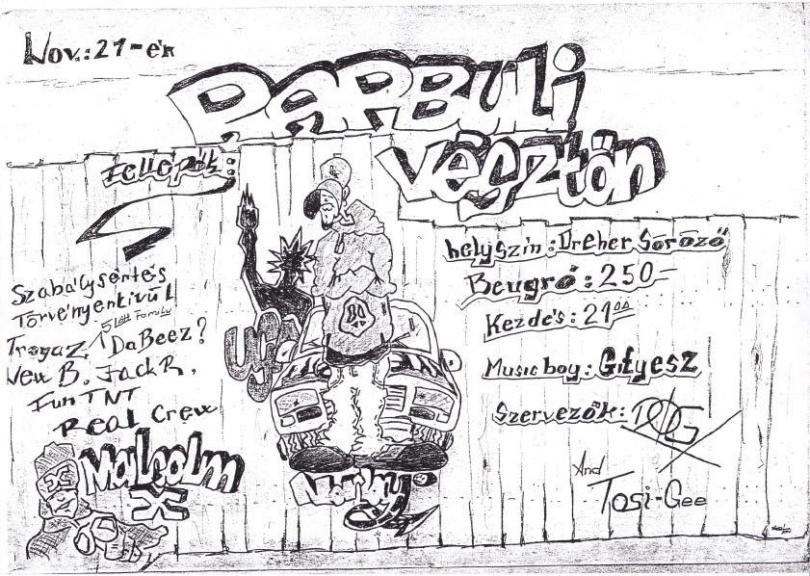 Nov.: 21-én
RAPBULI
Vésztőn
Fellépők:
Szabálysértés
Törvényenkívül
5 Lött Family
Trogaz DaBeez?
New B. Jack R.
Fun TNT
Real Crew
Malcolm
X
helyszín: Dreher Söröző
Beugró: 250-
Kezdés: 21⁰⁰
Music boy: Gityesz
Szervezők: DOG
And
Tosi-Gee